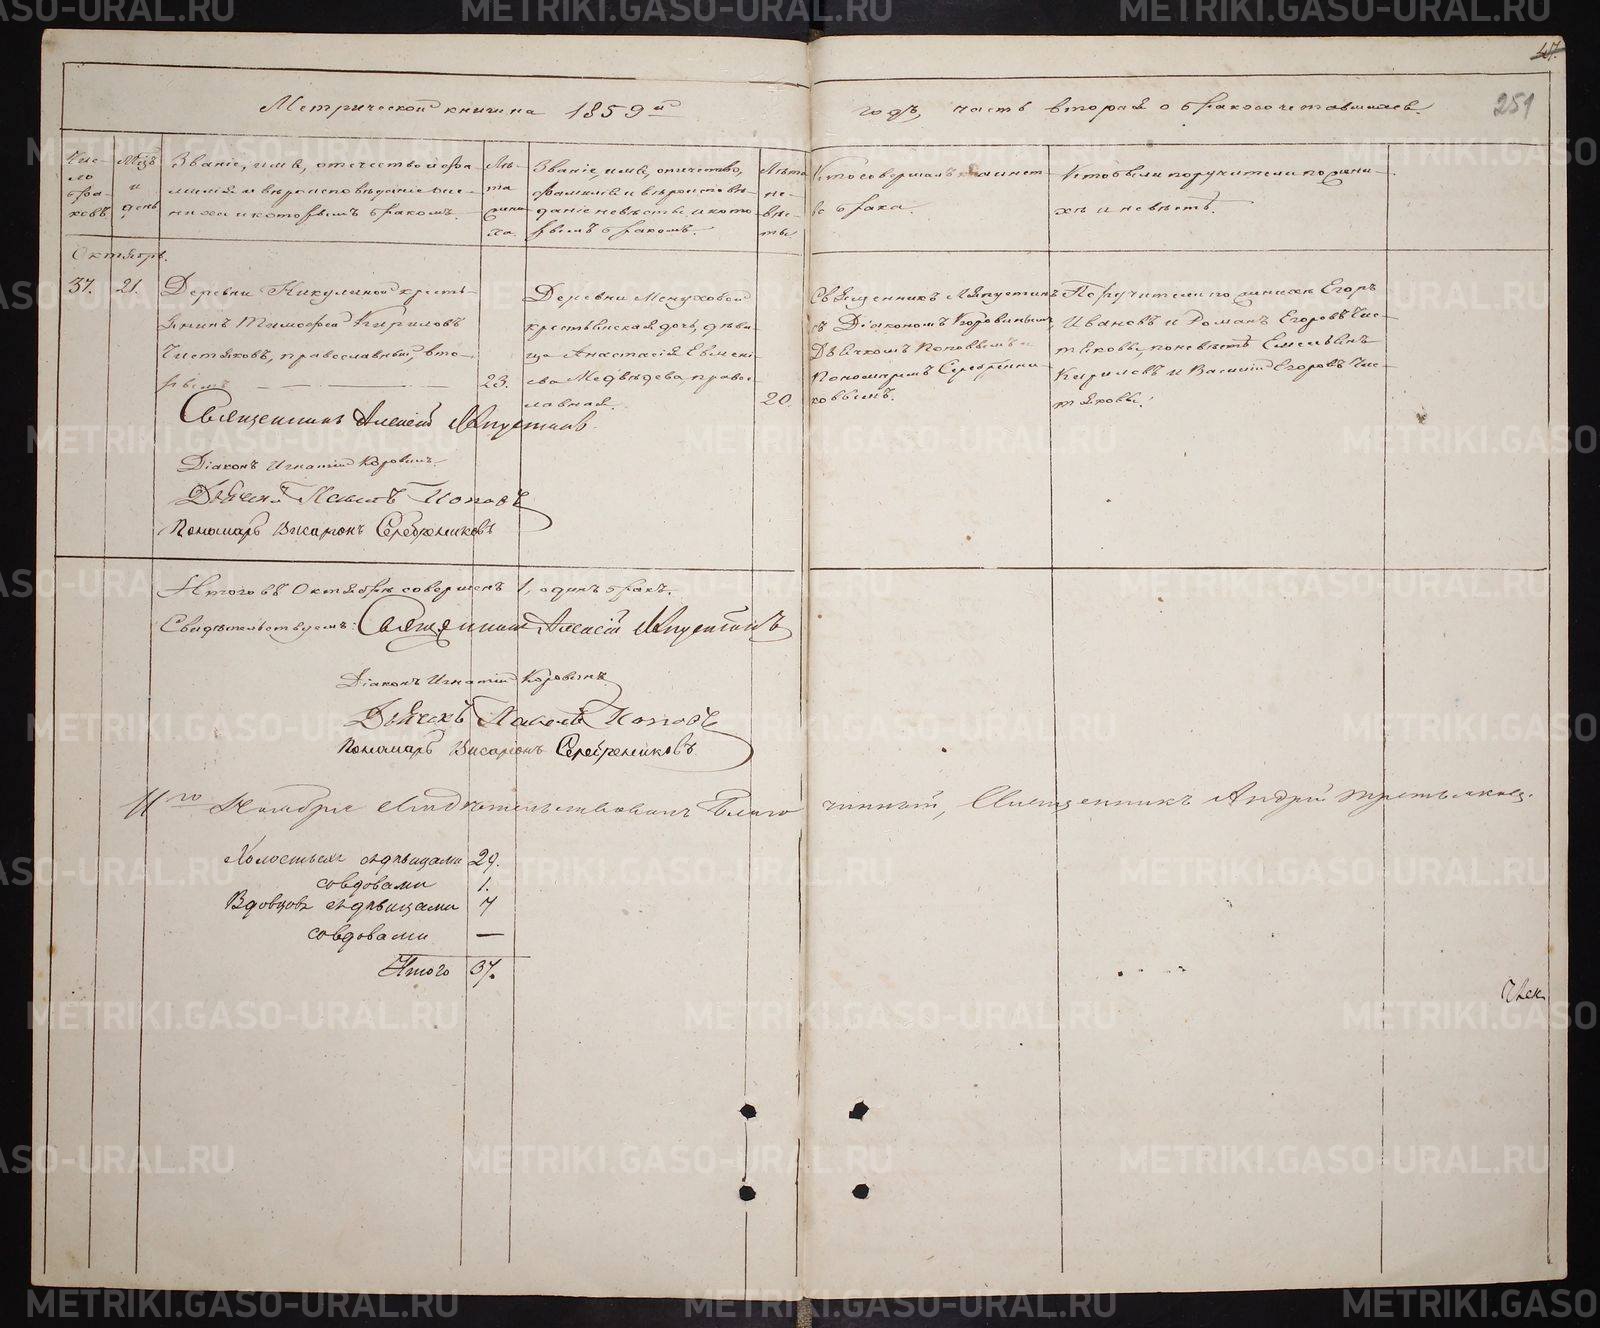 Метрической книги на 1859й годъ, часть вторая о бракосочетавшихся.
251
Чис-
ло
бра-
ковъ
Мѣцъ
и
день
Званіе, имя, отечество и фа-
милія и вѣроисповѣданіе же-
ниха и которымъ бракомъ.
Лѣ-
та
жени-
ха.
Званіе, имя, отчество,
фамилія и вѣроисповѣ-
даніе невѣсты, и кото-
рымъ бракомъ.
Лѣта
не-
вѣс-
ты
Кто совершалъ таинст-
во брака.
Кто были поручители по жени-
хѣ и невѣстѣ.
Октябрь.
37.
21.
Деревни Никулиной кресть-
янинъ Тимофей Кириловъ
Чистяковъ, православный, вто-
рымъ
23.
Деревни Менуховой
крестьянская дочь, дѣви-
ца Анастасія Евмені-
ева Медвѣдева, право-
славная.
20.
Священникъ Ляпустинъ
съ Діакономъ Коровинымъ,
Дьячкомъ Поповымъ и
Пономаремъ Серебренни-
ковымъ.
Поручители по женихѣ Егоръ
Ивановъ и Романъ Егоровъ Чис-
тяковы, по невѣстѣ Емельянъ
Кириловъ и Василій Егоровъ Чис-
тяковы.
Священникъ Алексій Ляпустинъ.
Діаконъ Игнатій Коровинъ.
Дьячекъ Павелъ Поповъ
Пономарь Висарионъ Серебрениковъ
Итого въ Октябрѣ совершенъ 1, одинъ бракъ.
Свидѣтельствуемъ: Священникъ Алексій Ляпустинъ
Діаконъ Игнатій Коровинъ
Дьячекъ Павелъ Поповъ
Пономарь Висарионъ Серебрениковъ.
11го Ноября Свидѣтельствовалъ Благочинный, Священникъ Андрей Третьяковъ.
Холостыхъ съ дѣвицами 29.
со вдовами 1.
Вдовцовъ съ дѣвицами 7
со вдовами —
Итого 37.
METRIKI.GASO-URAL.RU